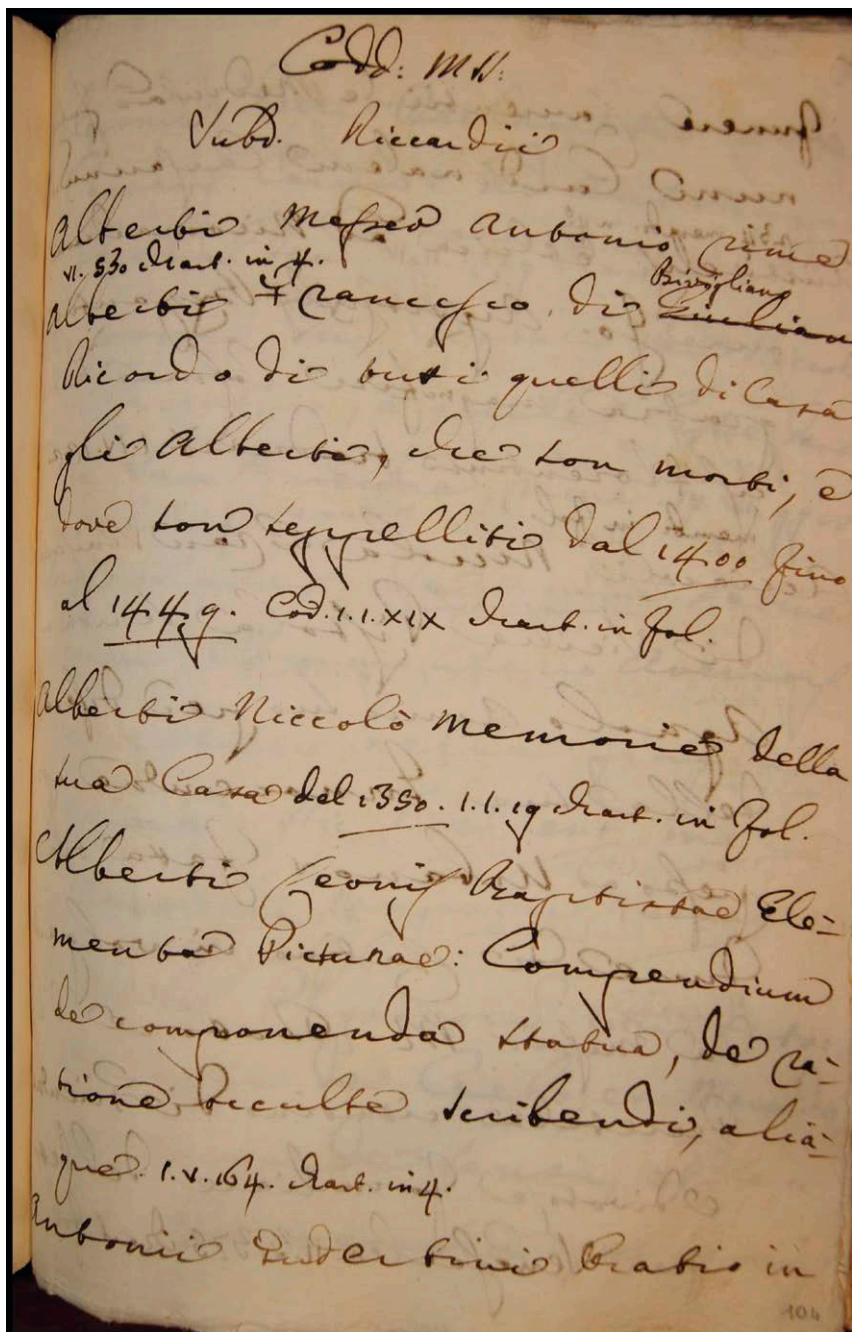 Codd: MSS:
Subd. Riccardii
Alberti Messer Antonio rime
VI. 530 chart. in 4.
Alberti Francesco di Bivigliano Giuliano
Ricordo di tutti quelli di Casa
gli Alberti, che son morti, e
dove son seppelliti dal 1400 fino
al 1449. Cod. 1.1. XIX chart. in fol.
Alberti Niccolò memorie della
sua Casa del 1350. 1.1.19 chart. in fol.
Alberti Leonis Baptistae Ele-
menta Picturae: Compendium
de componenda statua, de ra-
tione occulte scribendi, alia-
que. 1.V.164. chart. in 4.
Antonii Tudertini Oratio in
104